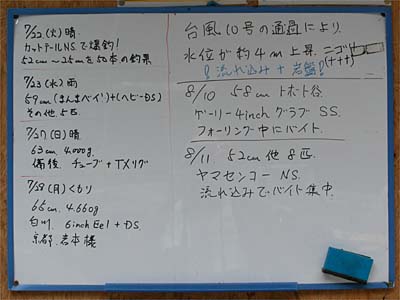 7/22 (火) 晴
カットテールNS.で爆釣!
52cm~25cmを50本の釣果
7/23 (水) 雨
59cm (まんまベイト)+(ヘビーDS)
その他 5匹
7/27 (日) 晴
63cm. 4.000g.
備後. チューブ+TXリグ
7/28 (月) くもり
66cm. 4.660g
白川. 6inch Eel + DS.
京都. 岩本様
台風10号の通過により、
水位が約4m上昇. ニゴリ(+++)
!流れ込み+岩盤!
8/10 58cm トボト谷
ゲーリー4inchグラブSS.
フォーリング中にバイト.
8/11 52cm 他8匹
ヤマセンコー NS.
流れ込みでバイト集中.